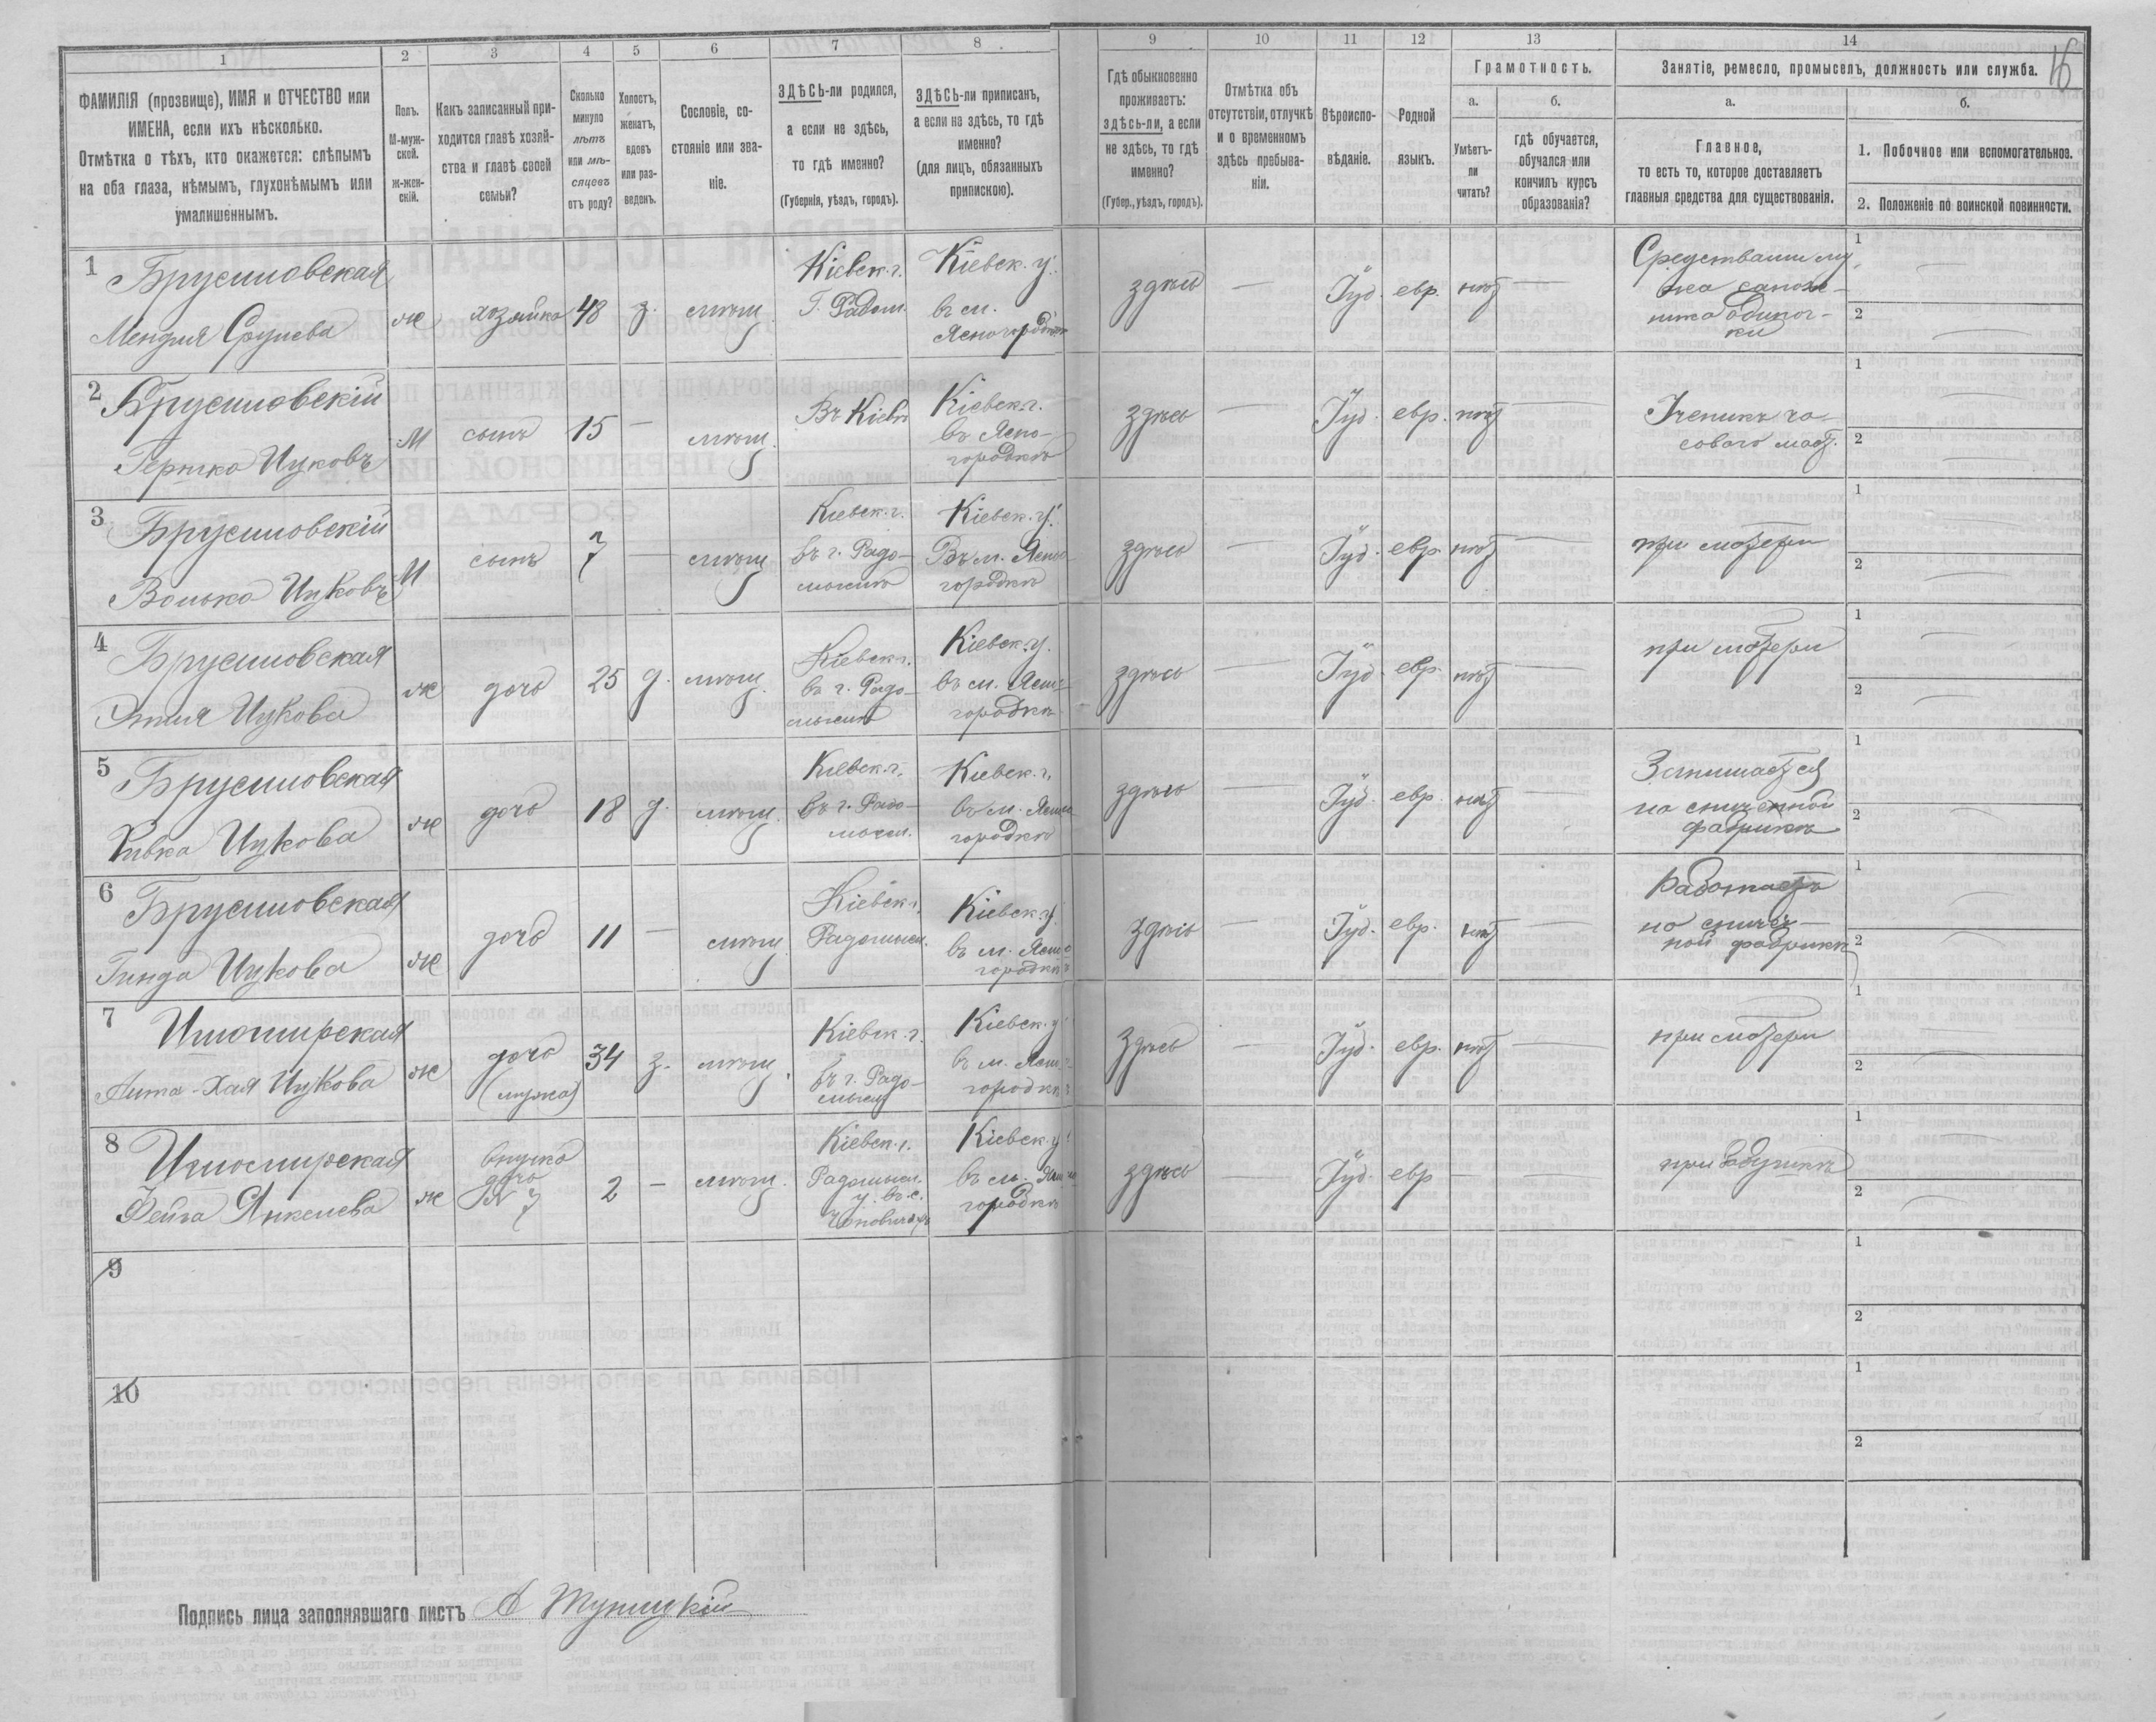 16
1 2 3 4 5 6 7 8 9 10 11 12 13 14
ФАМИЛІЯ (прозвище), ИМЯ и ОТЧЕСТВО или
ИМЕНА, если ихъ нѣсколько.
Отмѣтка о тѣхъ, кто окажется: слѣпымъ
на оба глаза, нѣмымъ, глухонѣмымъ или
умалишеннымъ.
Полъ.
М-муж-
ской.
ж-жен-
скій.
Какъ записанный при-
ходится главѣ хозяй-
ства и главѣ своей
семьи?
Сколько
минуло
лѣтъ
или мѣ-
сяцевъ
отъ роду?
Холостъ,
женатъ,
вдовъ
или раз-
веденъ.
Сословіе, со-
стояніе или зва-
ніе.
ЗДѢСЬ-ли родился,
а если не здѣсь,
то гдѣ именно?
(Губернія, уѣздъ, городъ).
ЗДѢСЬ-ли приписанъ,
а если не здѣсь, то гдѣ
именно?
(для лицъ, обязанныхъ
припискою).
Гдѣ обыкновенно
проживаетъ:
здѣсь-ли, а если
не здѣсь, то гдѣ
именно?
(Губер., уѣздъ, городъ).
Отмѣтка объ
отсутствіи, отлучкѣ
и о временномъ
здѣсь пребыва-
ніи.
Вѣроиспо-
вѣданіе.
Родной
языкъ.
Грамотность.
а.
Умѣетъ-
ли
читать?
б.
гдѣ обучается,
обучался или
кончилъ курсъ
образованія?
Занятіе, ремесло, промыселъ, должность или служба.
а.
Главное,
то есть то, которое доставляетъ
главныя средства для существованія.
б.
1. Побочное или вспомогательное.
2. Положеніе по воинской повинности.
1
Брусиловская
Мендля Срулева
ж хозяйка 48 з. мѣщ.
Кіевск. г.
Г. Радом.
Кіевск. у.
въ м.
Ясногородкѣ
здѣсь — Іуд. евр. нѣт —
Средствами му
жа сапож-
ника одиноч-
ки
1 —
2 —
2
Брусиловскій
Гершко Ицковъ
М сынъ 15 — мѣщ.
Въ Кіевѣ
Кіевск. г.
въ Ясно-
городкѣ
здѣсь — Іуд. евр. нѣт —
Ученикъ ча-
соваго маст.
1
2
3
Брусиловскій
Волько Ицковъ
М сынъ 7 — мѣщ
Кіевск. г.
въ г. Радо-
мыслѣ
Кіевск. у.
Въ м. Ясно
городкѣ
здѣсь — Іуд. евр. нѣт —
при матери
1
2
4
Брусиловская
Этля Ицкова
ж дочь 25 д. мѣщ.
Кіевск. г.
въ г. Радо-
мыслѣ
Кіевск. у.
въ м. Ясно-
городкѣ
здѣсь — Іуд. евр. нѣт —
при матери
1
2
5
Брусиловская
Ривка Ицкова
ж дочь 18 д. мѣщ.
Кіевск. г.
въ г. Радо-
мысл.
Кіевск. г.
въ м. Ясно
городкѣ
здѣсь — Іуд. евр. нѣт —
Занимается
на спичечной
фабрикѣ
1
2
6
Брусиловская
Гинда Ицкова
ж дочь 11 — мѣщ.
Кіевск. г.
Радомысл.
Кіевск. у.
въ м. Ясно
городкѣ
здѣсь — Іуд. евр. нѣт —
Работаетъ
на спичеч-
ной фабрикѣ
1
2
7
Ита-Хая Ицкова
ж дочь 34 з. мѣщ.
Кіевск. г.
въ г. Радо-
мыслѣ
Кіевск. у.
въ м. Ясно
городкѣ
здѣсь — Іуд. евр. нѣт —
при матери
1
2
8
Фейга Янкелева
ж внучка
дочь
№ 7
2 — мѣщ.
Кіевск. г.
Радомысл.
у. въ с.
Кіевск. у.
въ м. Ясно
городкѣ
здѣсь Іуд. евр — —
при бабушкѣ
1
2
9
1
2
10
1
2
Подпись лица заполнявшаго листъ